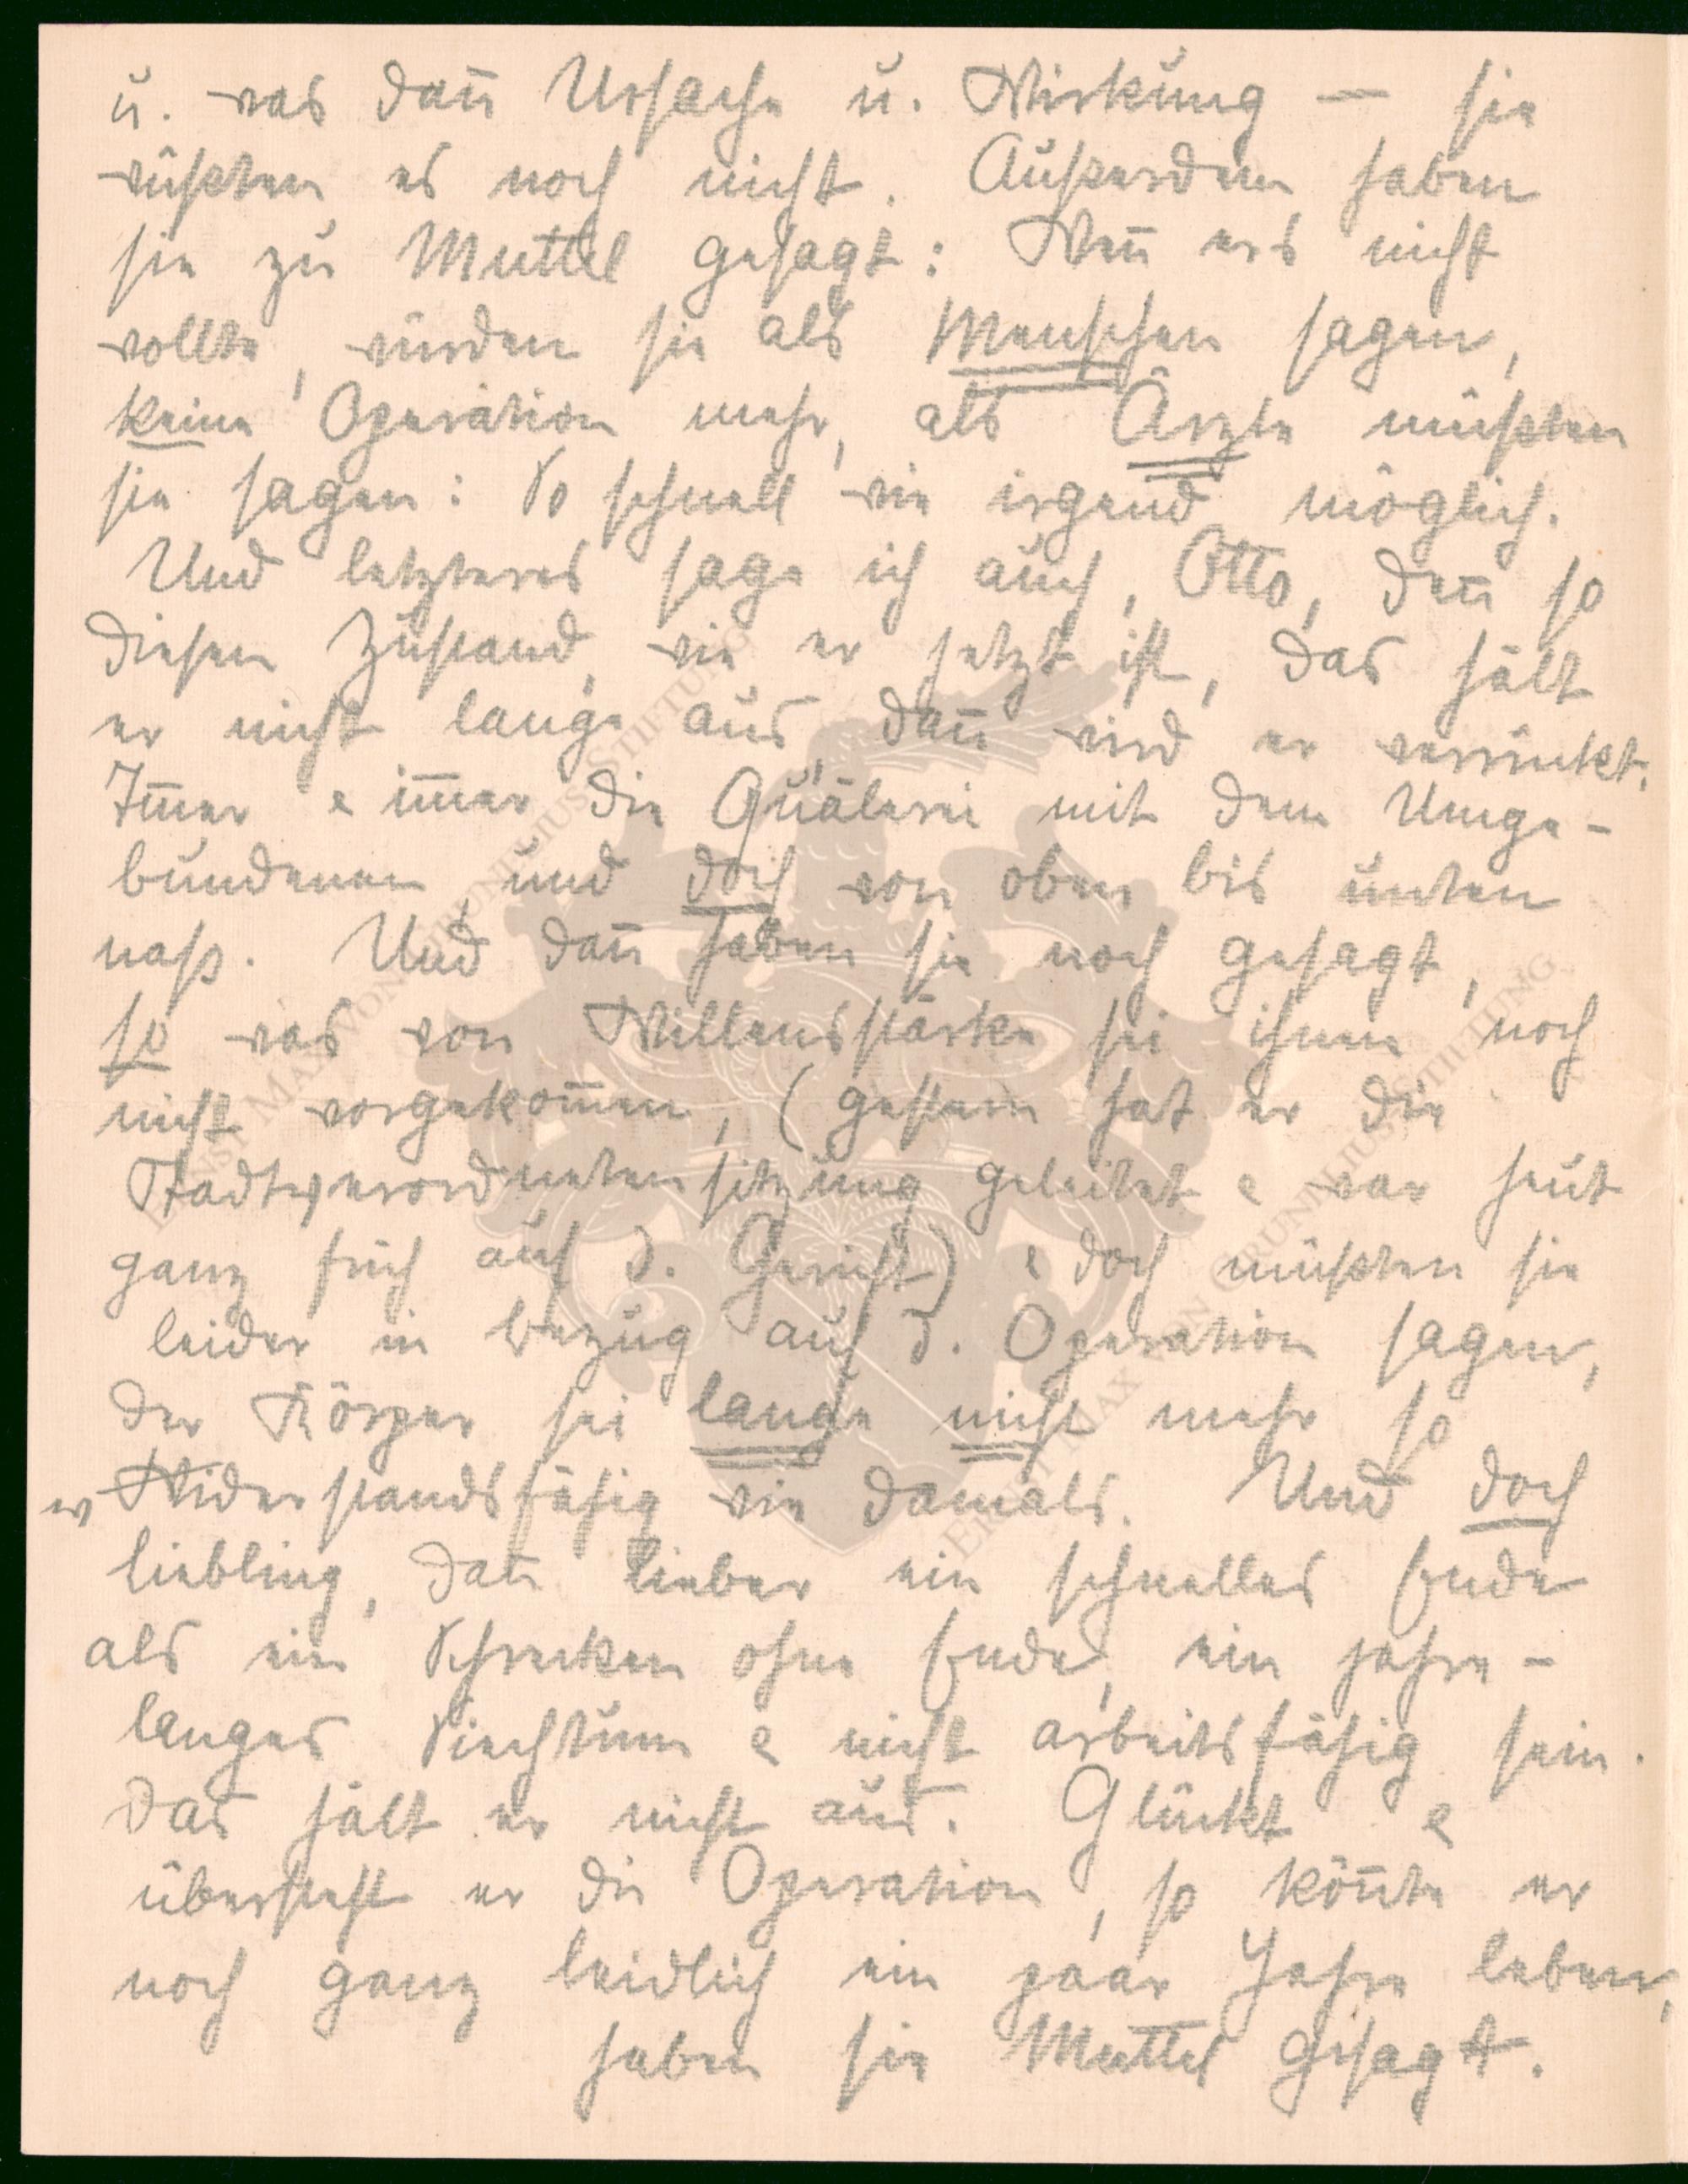 u. was dan̄ Ursache u. Wirkung — sie
wüßten es noch nicht. Außerdem haben
sie zu Muttel gesagt: Wen̄ ers nicht
wollte, würden sie als Menschen sagen,
keine Operation mehr, als Ärzte müßten
sie sagen: So schnell wie irgend möglich.
Und letzteres sage ich auch, Otto, den̄ so
diesen Zustand, wie er jetzt ist, das hält
er nicht lange aus, dan̄ wird er verrückt.
Im̄er & im̄er die Quälerei mit dem Umge-
bundenen und doch von oben bis unten
naß. Und dan̄ haben sie noch gesagt,
so was von Willensstärke sei ihnen noch
nicht vorgekom̄en, (gestern hat er die
Stadtverordnetensitzung geleitet & war heut
ganz früh auf d. Gericht) & doch müßten sie
leider in bezug auf d. Operation sagen,
der Körper sei lange nicht mehr so
w Widerstandsfähig wie damals. Und doch
liebling, dan̄ lieber ein schnelles Ende
als ein Schrecken ohne Ende, ein jahre-
langes Siechtum & nicht arbeitsfähig sein.
Das hält er nicht aus. Glückt &
übersteht er die Operation, so kön̄te er
noch ganz leidlich ein paar Jahre leben,
haben sie Muttel gesagt.
ERNST MAX VON GRUNELIUS STIFTUNG
ERNST MAX VON GRUNELIUS STIFTUNG